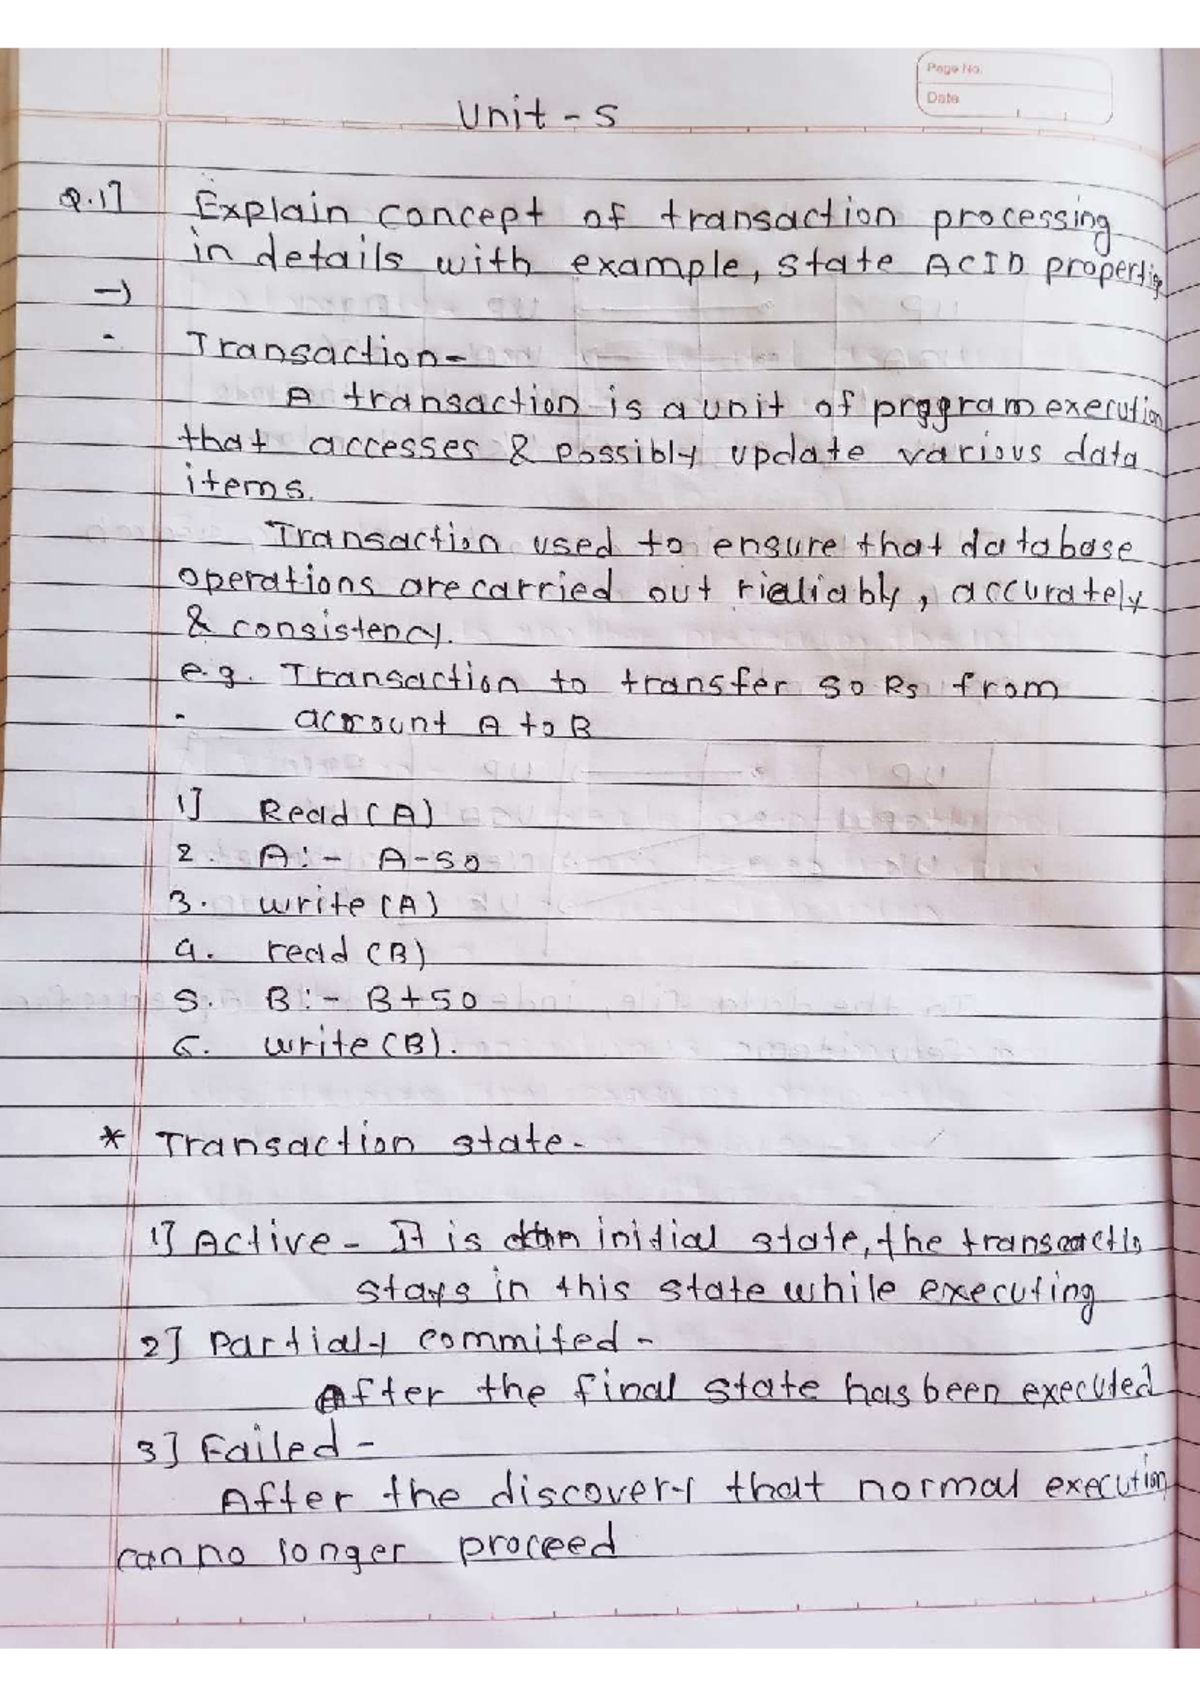 Page No.
Date
Unit - 5
Q.1] Explain concept of transaction processing
in details with example, state ACID properties
→
Transaction-
A transaction is a unit of program execution
that accesses & possibly update various data
items.
Transaction used to ensure that database
operations are carried out rialiably, accurately
& consistency.
e.g. Transaction to transfer 50 Rs from
account A to B
1] Read (A)
2. A:- A-50
3. write (A)
4. read (B)
5. B:- B+50
6. write (B).
* Transaction state-
1] Active - It is an initial state, the transactio
stays in this state while executing
2] Partialy commited -
After the final state has been executed
3] Failed -
After the discovery that normal execution
can no longer proceed